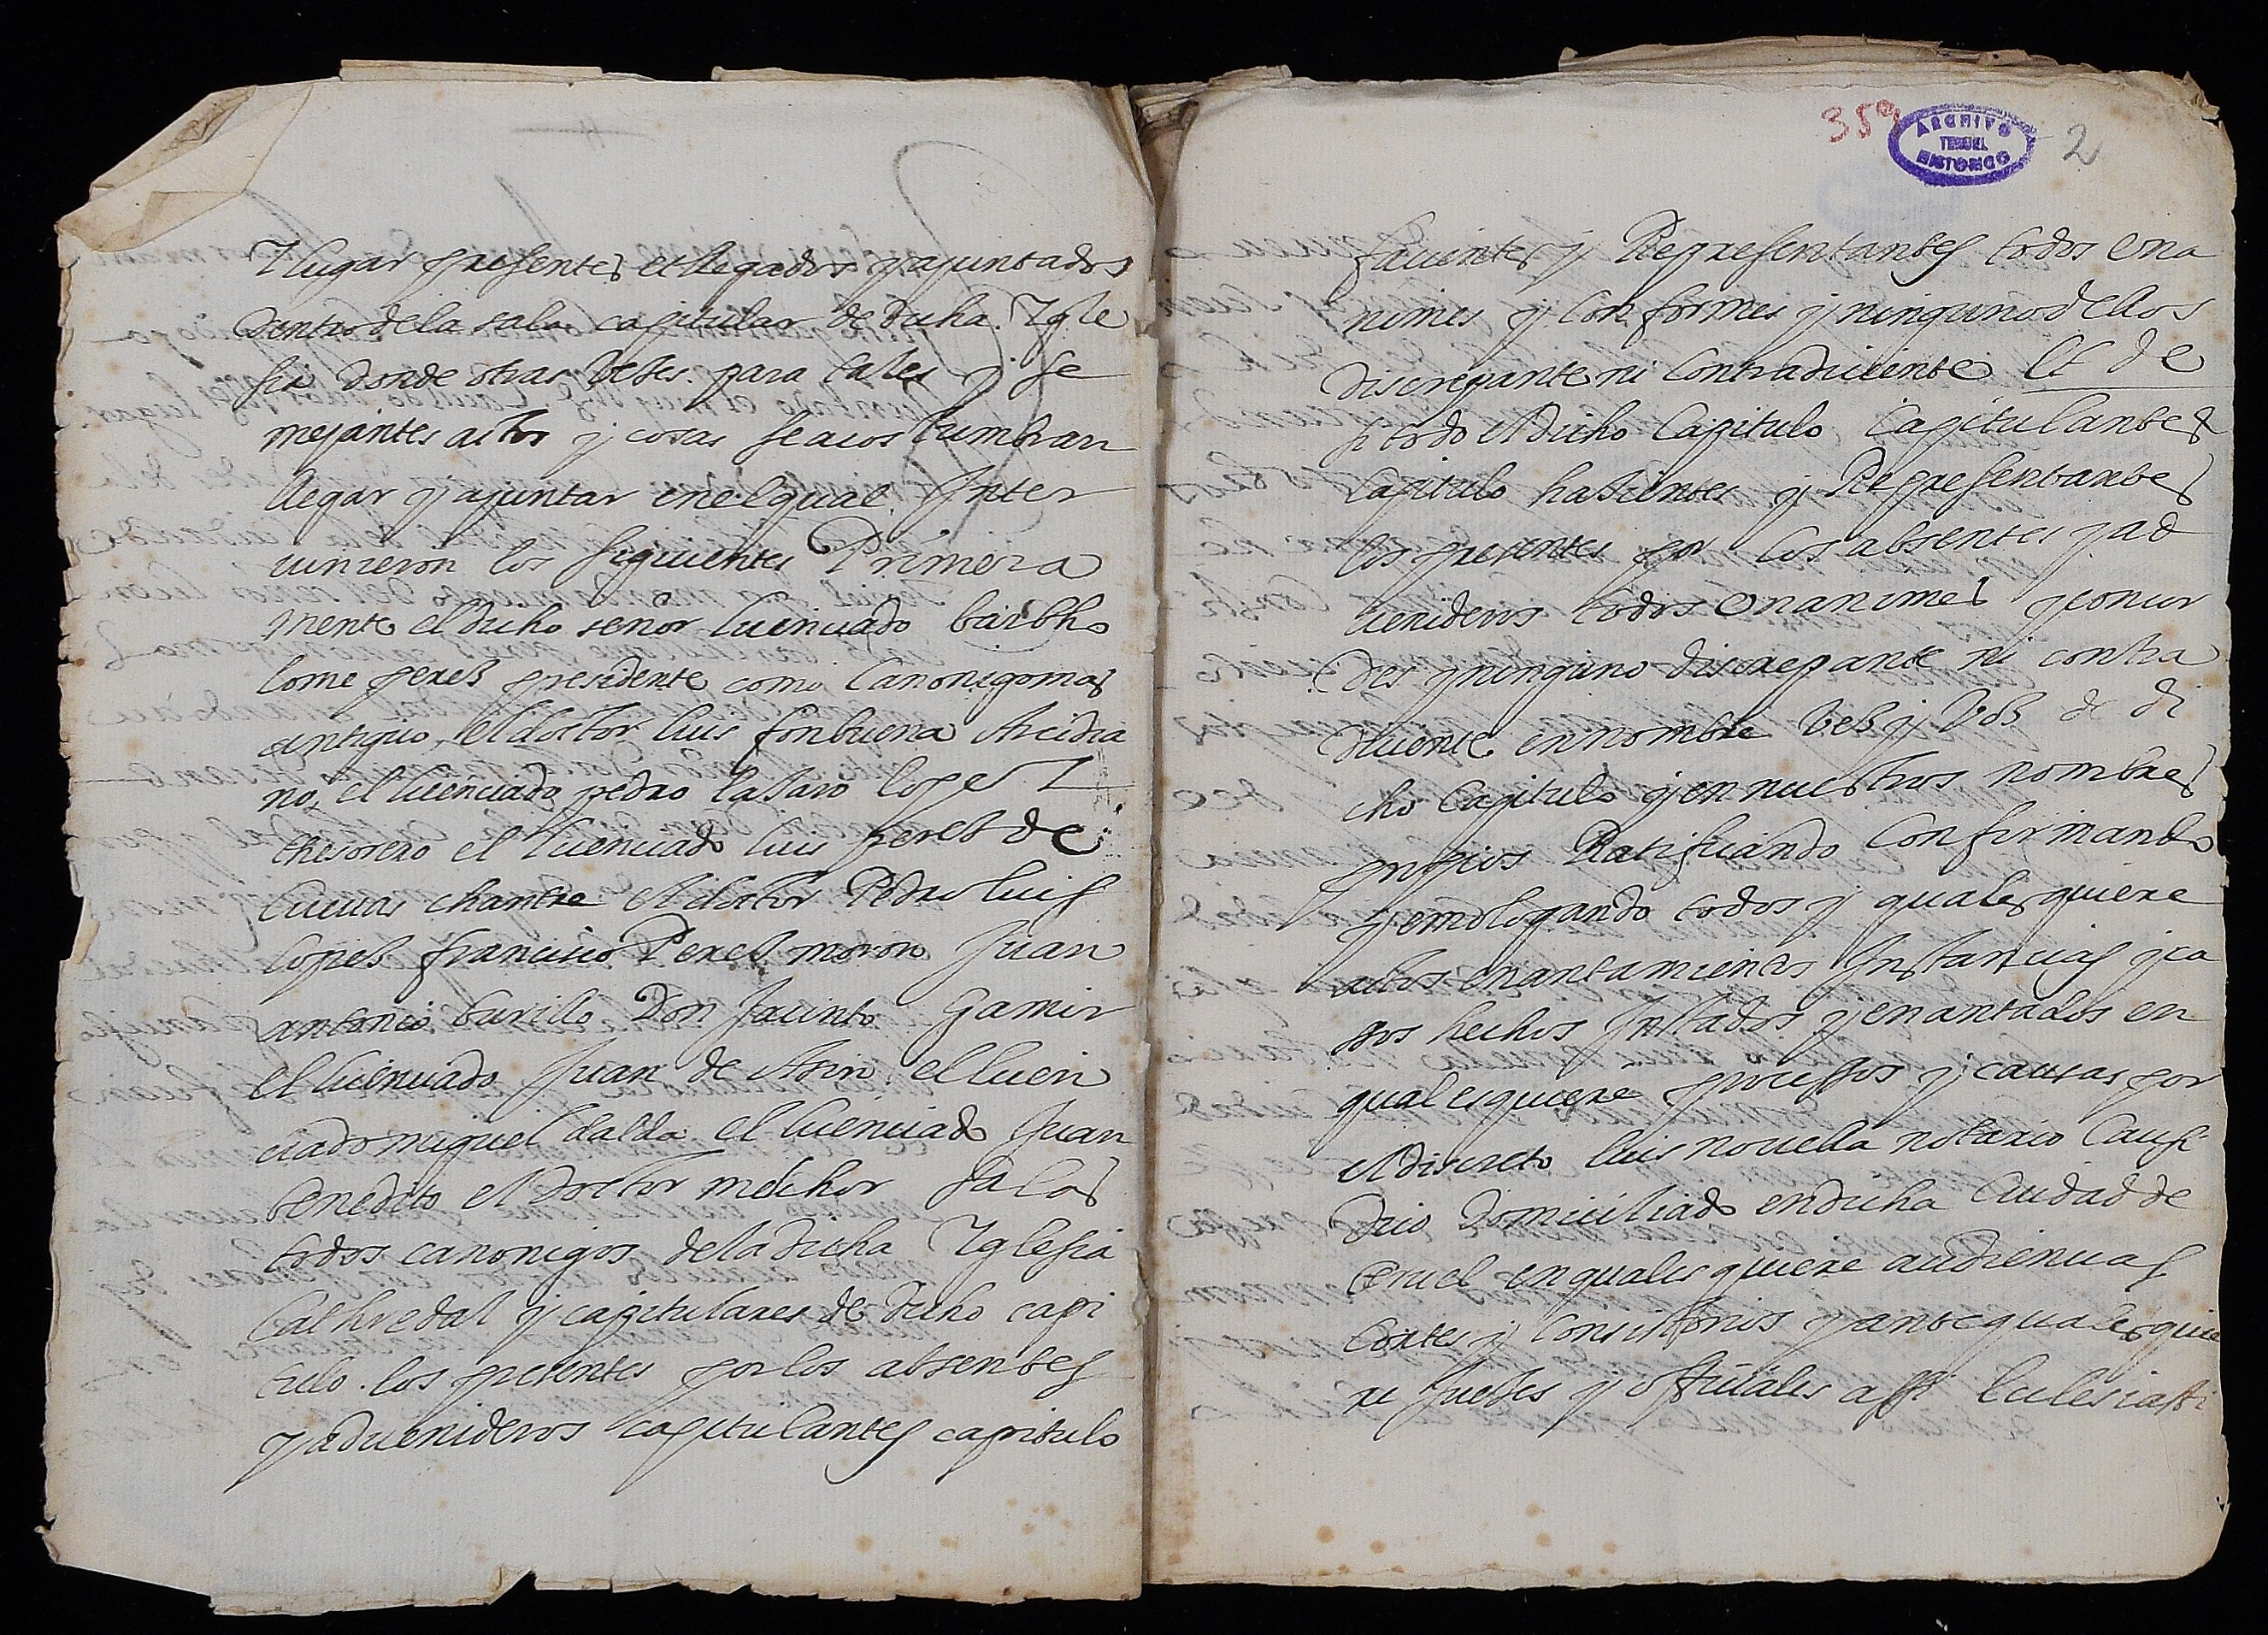 Y lugar presentes et llegados y ajuntados
dentro de la sala capitular de dicha Ygle
sia donde otras vezes para tales y se
mejantes actos y cosas se acostumbran
llegar y ajuntar en el qual Inter
uinieron los siguientes Primera
mente el dicho señor licenciado bartho
lome perez presidente como Canonigo mas
antiguo, el doctor luis fonbuena Arcidia
no, el licenciado pedro lazaro lopez
thesorero el licenciado luis perez de
Cueuas chantre el doctor Pedro luis
lopez francisco Perez moron Juan
antonio burillo Don Jacinto Gamir
el licenciado Juan de Asin el licen
ciado miguel dalda el licenciado Juan
benedito el Doctor melchor salas
todos canonigos de la dicha Yglesia
Cathredal y capitulares de dicho capi
tulo los presentes por los absentes
y aduenideros capitulantes capitulo
359
ARCHIVO
TERUEL
HISTORICO
2
facientes y Representantes todos Una
nimes y Conformes y ninguno dellos
discrepante ni Contradiciente Et de
si todo el dicho Capitulo Capitulantes
Capitulo hazientes y Representantes
los presentes por los absentes y ad
uenideros todos Unanimes y concor
des y ninguno discrepante ni contra
diciente en nombre Vez y Voz de di
cho Capitulo y en nuestros nombres
propios Ratificando Confirmando
y emologando todos y qualesquiere
actos enantamientos Instancias y ca
sos hechos Instados y enantados en
qualesquiere processos y causas por
el discreto luis nouella notario Causi
dico Domiciliado en dicha Ciudad de
teruel en qualesquiere audiencias
Cortes y Consistorios y ante qualesquie
re Juezes y officiales assi Eclesiasti